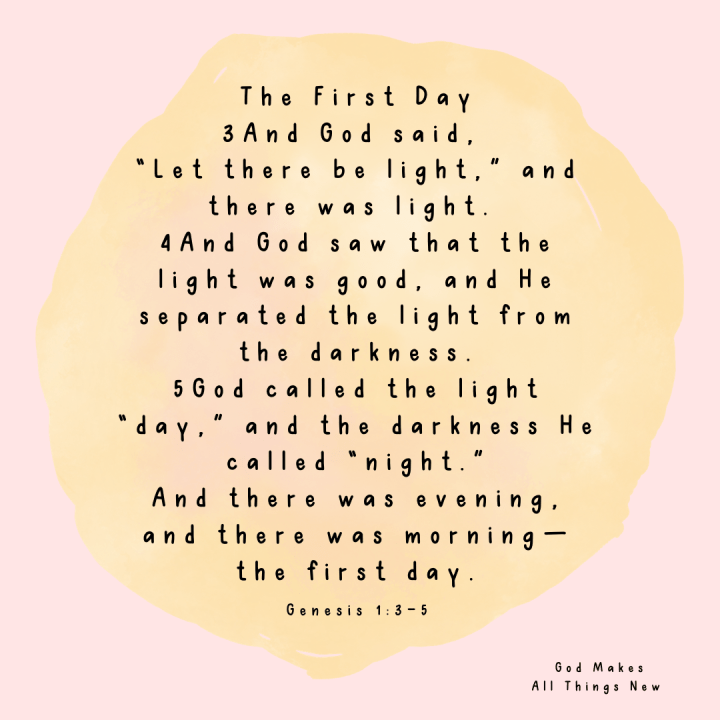 The First Day
3And God said,
“Let there be light,” and
there was light.
4And God saw that the
light was good, and He
separated the light from
the darkness.
5God called the light
“day,” and the darkness He
called “night.”
And there was evening,
and there was morning—
the first day.
Genesis 1:3–5
God Makes
All Things New